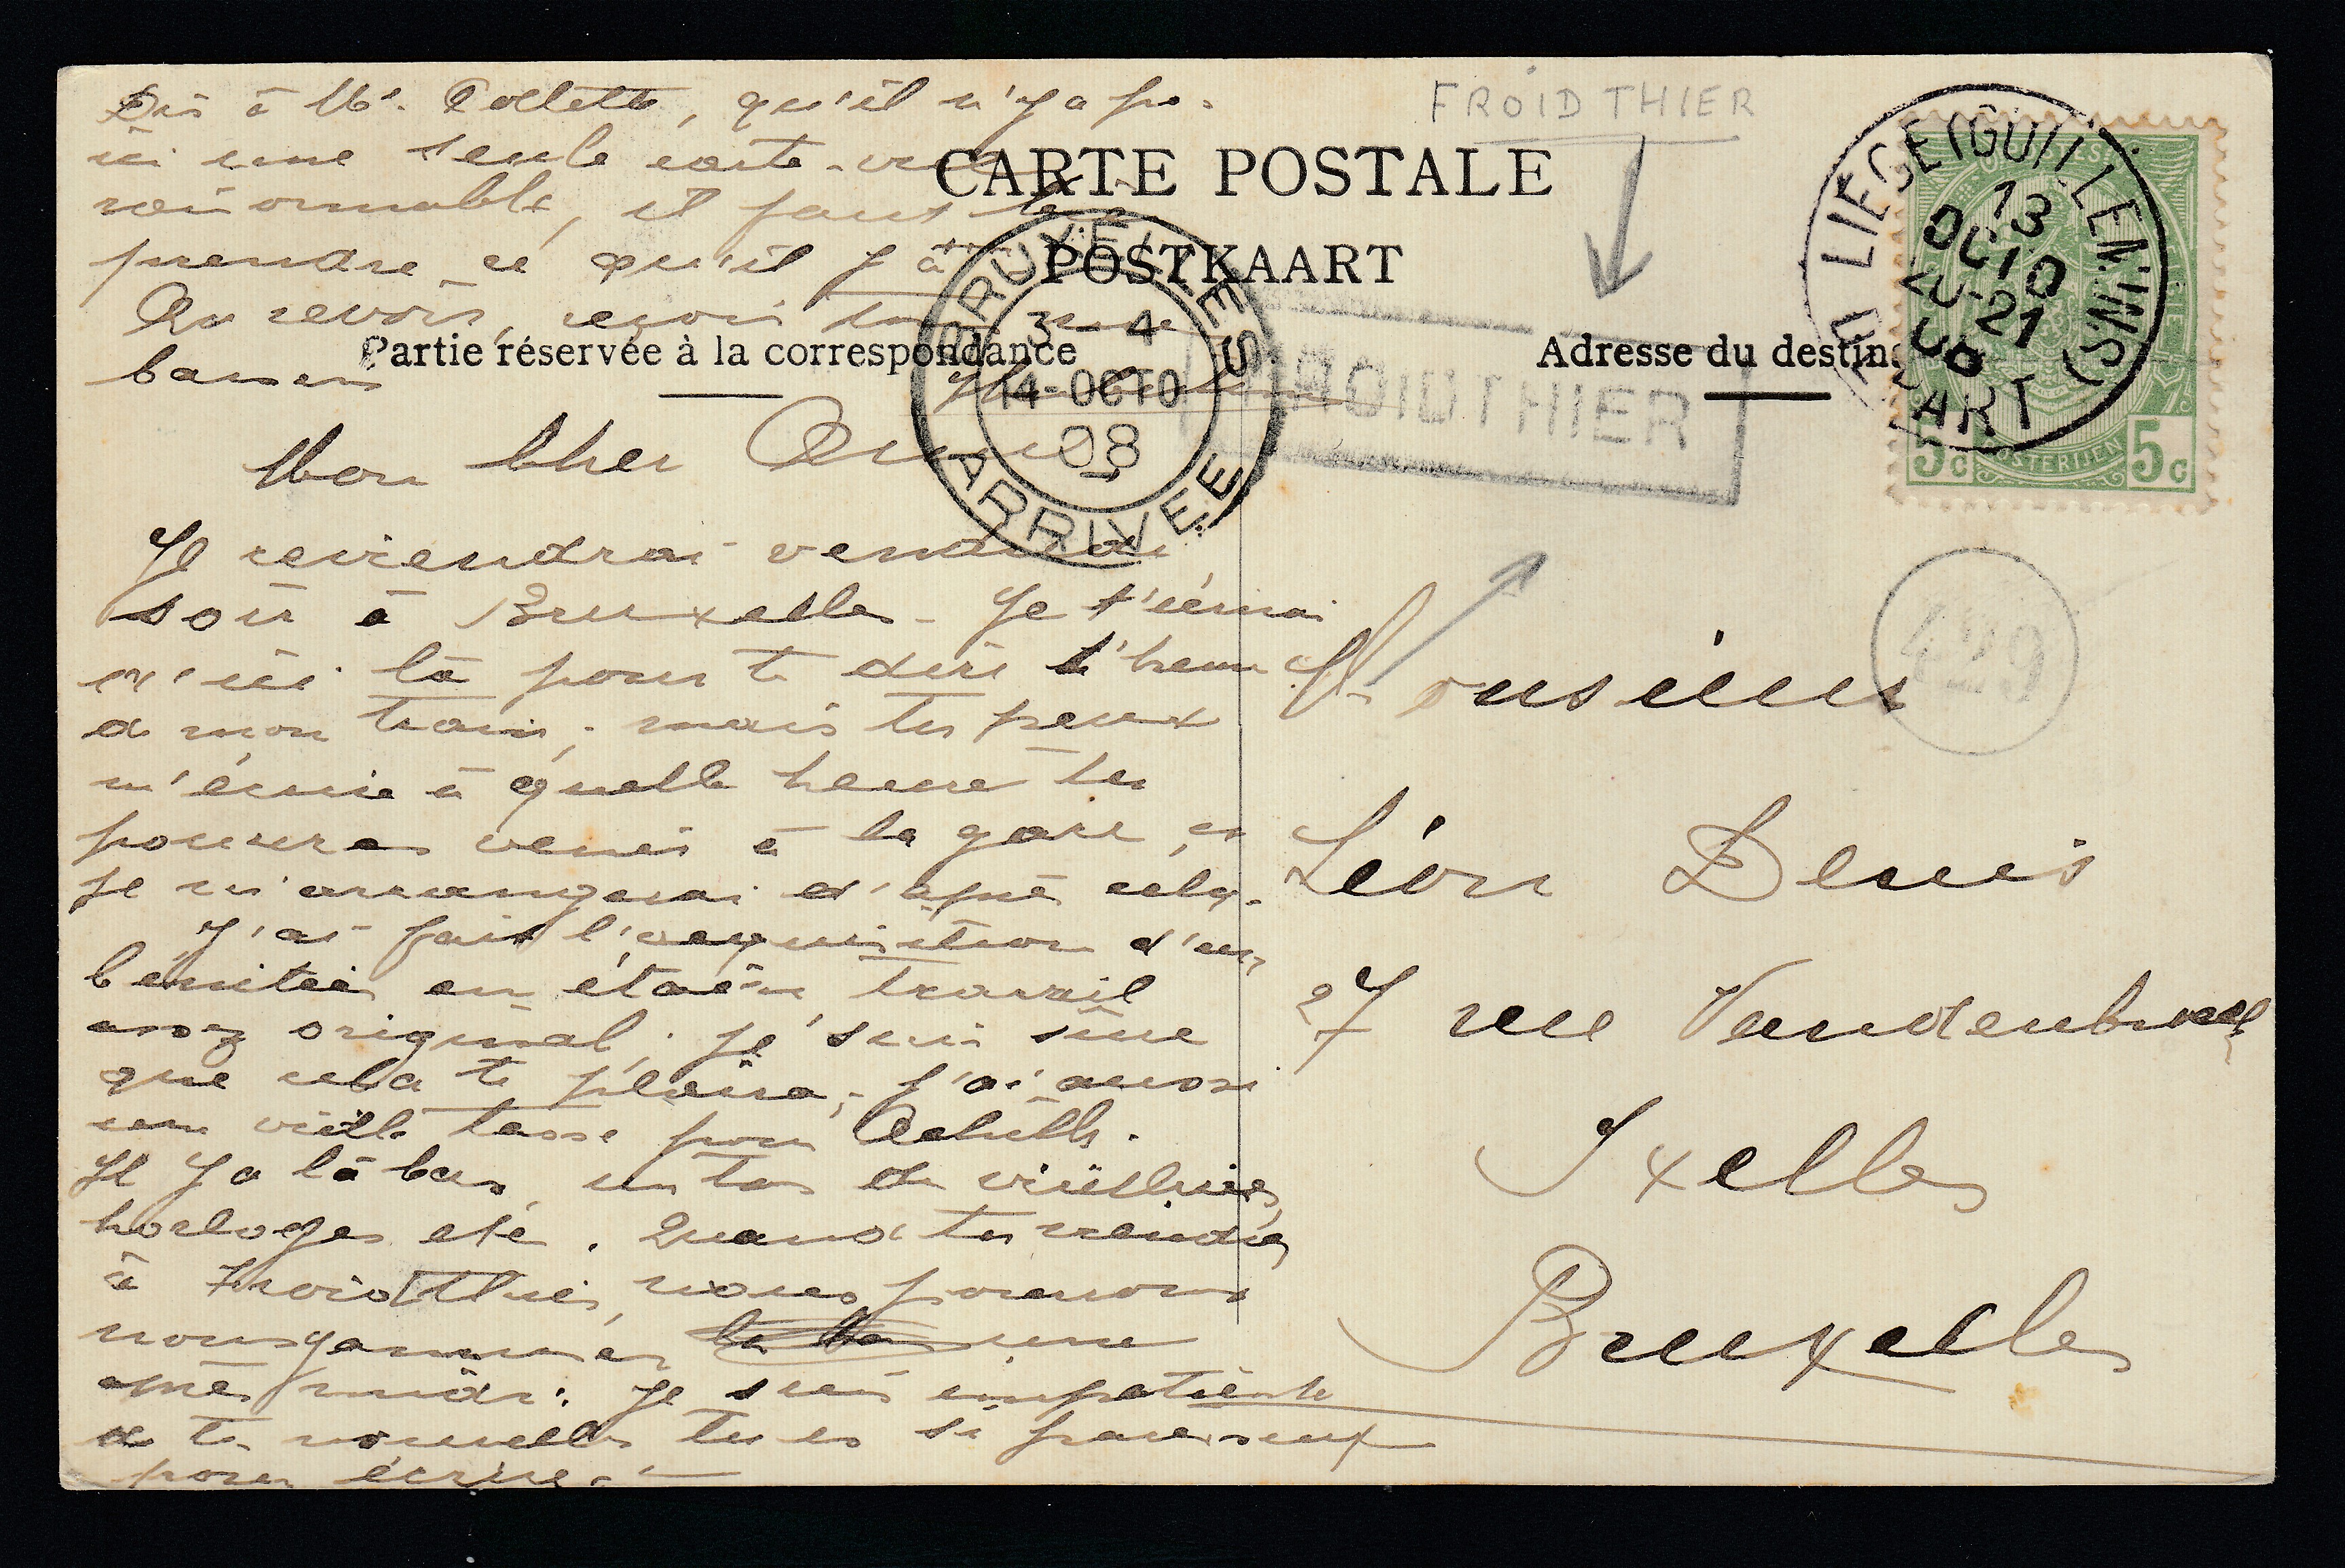 Dis à Mr. Collette, qu'il n'y a pas
ici une seule carte-vue
raisonnable, il faut
prendre ce qu'il y a
Au revoir, reçois
baisers
FROID THIER
CARTE POSTALE
POSTKAART
Partie réservée à la correspondance
Adresse du destin
BRUXELLES
3 - 4
14-OCTO
08
ARRIVEE
FROIDTHIER
LIEGE (GUILLEMINS)
13
OCTO
20-21
08
DEPART
OOSTERIJEN
5c 5c
429
Mon cher
Je reviendrai vendredi
soir à Bruxelles. Je t'écrirai
d'ici là pour te dire l'heure
de mon train; mais tu peux
m'écrire à quelle heure tu
pourras venir à la gare, et
je m'arrangerai d'après cela.
J'ai fait l'acquisition d'un
bénitier en étain travail
assez original; je suis sûre
que cela te plaira; j'ai aussi
une vieille tasse pour Achille.
Il y a là bas, un tas de vieilleries,
horloges etc. Quand tu viendras
à Froidthier, nous pourrons
nous y amuser une
après midi. Je suis impatiente
de tes nouvelles tu es si paresseux
pour écrire.
Monsieur
Léon Denis
27 rue Vandenbroeck
Ixelles
Bruxelles